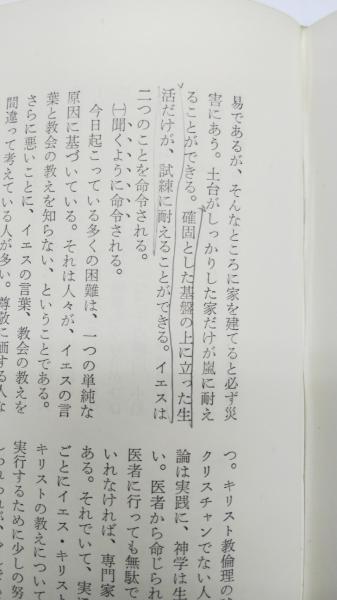 易であるが、そんなところに家を建てると必ず災
害にあう。土台がしっかりした家だけが嵐に耐え
ることができる。確固とした基盤の上に立った生
活だけが、試練に耐えることができる。イエスは
二つのことを命令される。
㈠聞くように命令される。
今日起こっている多くの困難は、一つの単純な
原因に基づいている。それは人々が、イエスの言
葉と教会の教えを知らない、ということである。
さらに悪いことに、イエスの言葉、教会の教えを
間違って考えている人が多い。尊敬に価する人な
つ。キリスト教倫理の
クリスチャンでない人
論は実践に、神学は生
い。医者から命じられ
医者に行っても無駄で
いれなければ、専門家
ある。それでいて、実
ごとにイエス・キリスト
キリストの教えについて
実行するために少しの努